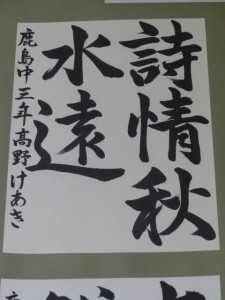 詩情秋
水遠
鹿島中三年髙野けあき